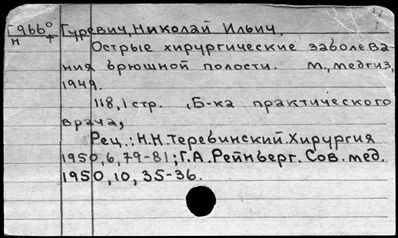 Г966° Гуревич, Николай Ильич.
н т Острые хирургические заболева
ния брюшной полости. М., медгиз,
1949.
118,1 стр. (Б-ка практического
врача,
Рец.: Н.Н. Теребинский. Хирургия
1950,6,79-81; Г.А. Рейнберг. Сов. мед.
1950,10,35-36.